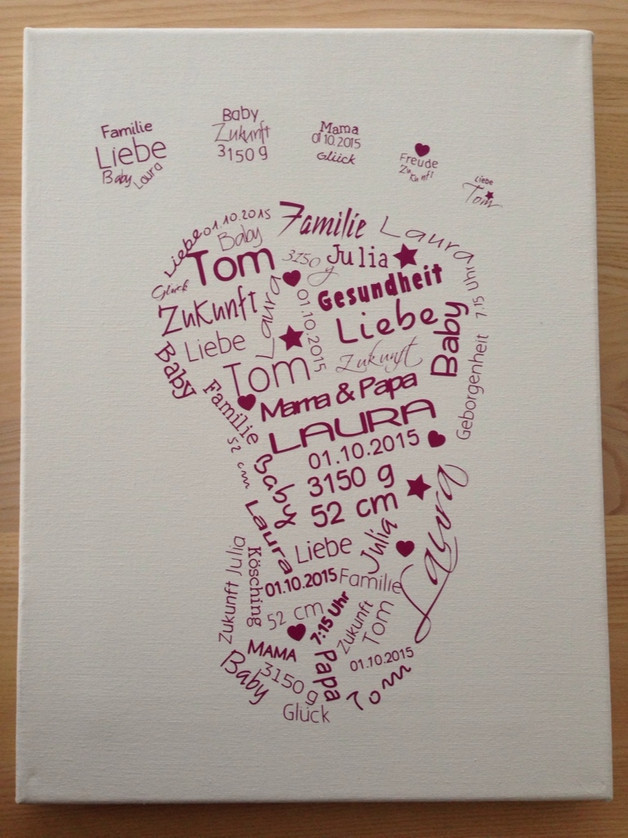 Familie
Liebe
Baby Laura
Baby
Zukunft
3150 g
Mama
01.10.2015
Glück
Freude
Zukunft
Liebe
Tom
Liebe 01.10.2015
Baby
Familie
Laura
Glück
Tom
3150 g
Julia
Zukunft
Laura
01.10.2015
Gesundheit
Liebe
Baby
7:15 Uhr
Liebe
Zukunft
Geborgenheit
Baby
Tom
Familie
Mama & Papa
LAURA
01.10.2015
52 cm
Baby
3150 g
52 cm
Laura
Laura
Liebe
Julia
Zukunft Julia
Kösching
01.10.2015
Familie
52 cm
7:15 Uhr
Zukunft
Tom
MAMA
Papa
01.10.2015
Baby
3150 g
Tom
Glück